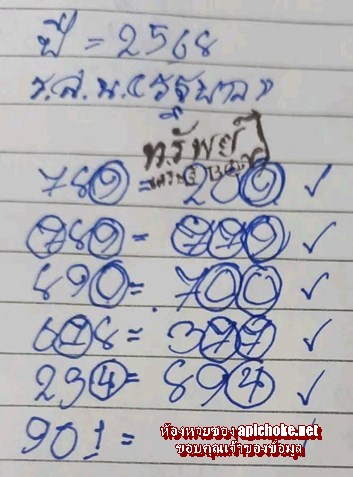 ปี = 2568
ร.ส.น. "รัฐบาล"
ทรัพย์
789 = 209 ✓
789 = 779 ✓
890 = 700 ✓
678 = 377 ✓
234 = 894 ✓
901 = ✓
ห้องหวยของ apichoke.net
ขอบคุณเจ้าของข้อมูล